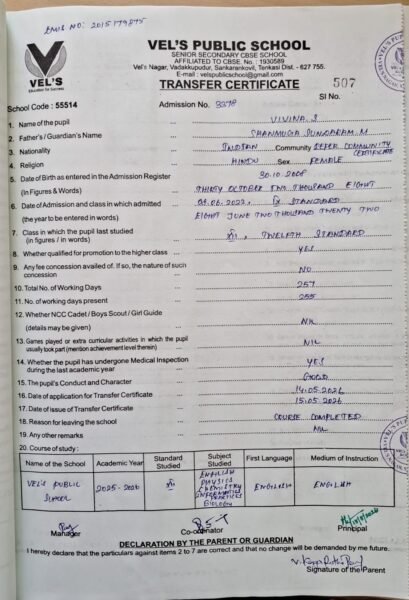 EMIS NO: 2015179875
VEL'S
Education for Success
VEL'S PUBLIC SCHOOL
SENIOR SECONDARY CBSE SCHOOL
AFFILIATED TO CBSE. No. : 1930589
Vel's Nagar, Vadakkupudur, Sankarankovil, Tenkasi Dist. - 627 755.
E-mail : velspublicschool@gmail.com
TRANSFER CERTIFICATE
507
Sl No.
School Code : 55514
Admission No. 3378
1. Name of the pupil ... VIVINA. S
2. Father's / Guardian's Name ... SHANMUGA SUNDARAM. M
3. Nationality ... INDIAN Community REFER COMMUNITY CERTIFICATE
4. Religion ... HINDU Sex FEMALE
5. Date of Birth as entered in the Admission Register ... 30.10.2008
(In Figures & Words) ... THIRTY OCTOBER TWO THOUSAND EIGHT
6. Date of Admission and class in which admitted ... 08.06.2022, STANDARD
(the year to be entered in words) EIGHT JUNE TWO THOUSAND TWENTY TWO
7. Class in which the pupil last studied ... XII, TWELFTH STANDARD
(in figures / in words)
8. Whether qualified for promotion to the higher class ... YES
9. Any fee concession availed of. If so, the nature of such ... NO
concession
10. Total No. of Working Days ... 257
11. No. of working days present ... 255
12. Whether NCC Cadet / Boys Scout / Girl Guide ... NIL
(details may be given)
13. Games played or extra curricular activities in which the pupil ... NIL
usually took part (mention achievement level therein)
14. Whether the pupil has undergone Medical Inspection ... YES
during the last academic year
15. The pupil's Conduct and Character ... GOOD
16. Date of application for Transfer Certificate ... 14.05.2026
17. Date of issue of Transfer Certificate ... 15.05.2026
18. Reason for leaving the school ... COURSE COMPLETED
19. Any other remarks ... NIL
20. Course of study :
Name of the School Academic Year Standard Studied Subject Studied First Language Medium of Instruction
VEL'S PUBLIC SCHOOL 2025-2026 XII ENGLISH PHYSICS CHEMISTRY INFORMATICS PRACTICES BIOLOGY ENGLISH ENGLISH
Manager
Co-ordinator
Principal
DECLARATION BY THE PARENT OR GUARDIAN
I hereby declare that the particulars against items 2 to 7 are correct and that no change will be demanded by me future.
Signature of the Parent